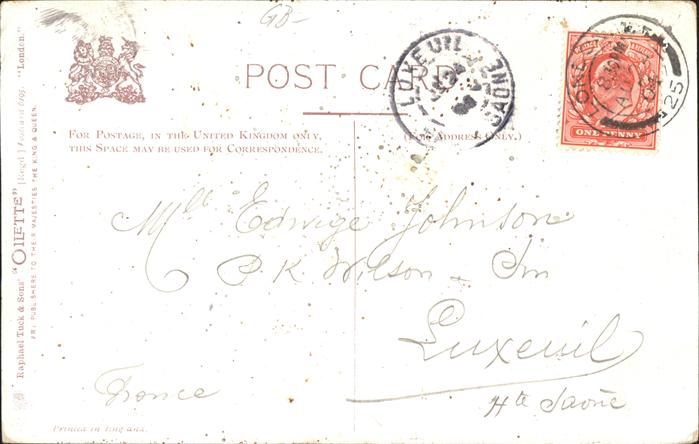 GB-
POST CARD
FOR POSTAGE, IN THE UNITED KINGDOM ONLY,
THIS SPACE MAY BE USED FOR CORRESPONDENCE.
(FOR ADDRESS ONLY.)
LUXEUIL
SAONE
LONDON
25
POSTAGE REVENUE
ONE PENNY
Mlle Edwige Johnson
P. K. Wilson &
Luxeuil
Hte Saône
France
Raphael Tuck & Sons' "OILETTE" [Regd.] Postcard 6195. "London."
FINE ART PUBLISHERS TO THEIR MAJESTIES THE KING & QUEEN.
Printed in England.